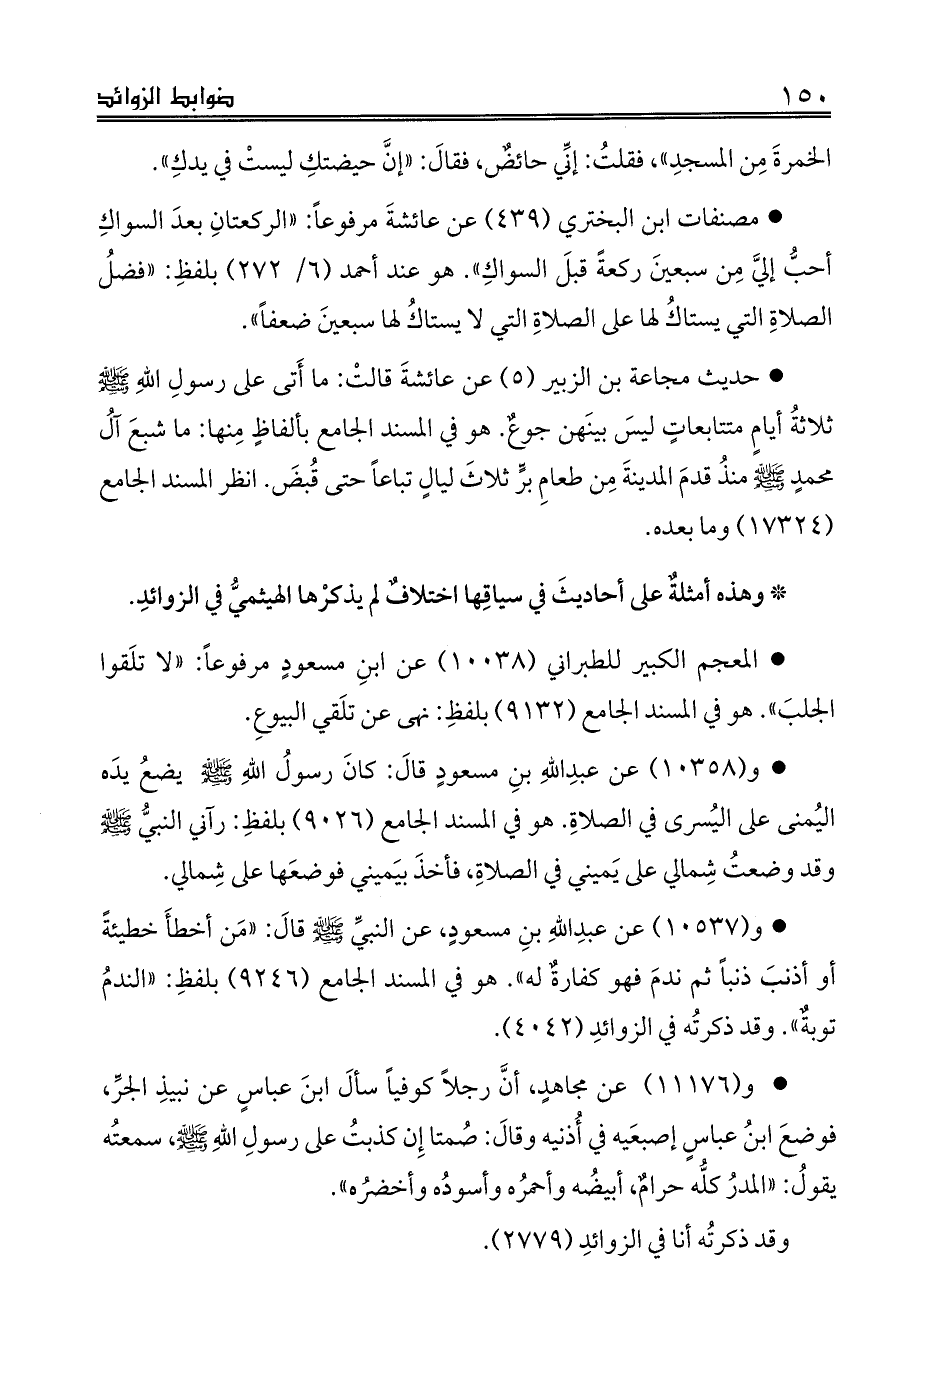 ١٥٠ ضوابط الزوائد
الخمرةَ مِن المسجدِ»، فقلتُ: إنِّي حائضٌ، فقالَ: «إنَّ حيضتكِ ليستْ في يدكِ».
● مصنفات ابن البختري (٤٣٩) عن عائشةَ مرفوعاً: «الركعتانِ بعدَ السواكِ
أحبُّ إليَّ مِن سبعينَ ركعةً قبلَ السواكِ». هو عند أحمد (٦/ ٢٧٢) بلفظِ: «فضلُ
الصلاةِ التي يستاكُ لها على الصلاةِ التي لا يستاكُ لها سبعينَ ضعفاً».
● حديث مجاعة بن الزبير (٥) عن عائشةَ قالتْ: ما أَتى على رسولِ اللهِ ﷺ
ثلاثةُ أيامٍ متتابعاتٍ ليسَ بينَهن جوعٌ. هو في المسند الجامع بألفاظٍ مِنها: ما شبعَ آلُ
محمدٍ ﷺ منذُ قدمَ المدينةَ مِن طعامِ برٍّ ثلاثَ ليالٍ تباعاً حتى قُبضَ. انظر المسند الجامع
(١٧٣٢٤) وما بعده.
* وهذه أمثلةٌ على أحاديثَ في سياقِها اختلافٌ لم يذكرْها الهيثميُّ في الزوائدِ.
● المعجم الكبير للطبراني (١٠٠٣٨) عن ابنِ مسعودٍ مرفوعاً: «لا تلَقوا
الجلبَ». هو في المسند الجامع (٩١٣٢) بلفظِ: نهى عن تلَقي البيوعِ.
● و(١٠٣٥٨) عن عبدِاللهِ بنِ مسعودٍ قالَ: كانَ رسولُ اللهِ ﷺ يضعُ يدَه
اليُمنى على اليُسرى في الصلاةِ. هو في المسند الجامع (٩٠٢٦) بلفظِ: رآني النبيُّ ﷺ
وقد وضعتُ شِمالي على يَميني في الصلاةِ، فأخذَ بيَميني فوضعَها على شِمالي.
● و(١٠٥٣٧) عن عبدِاللهِ بنِ مسعودٍ، عن النبيِّ ﷺ قالَ: «مَن أخطأَ خطيئةً
أو أذنبَ ذنباً ثم ندمَ فهو كفارةٌ له». هو في المسند الجامع (٩٢٤٦) بلفظِ: «الندمُ
توبةٌ». وقد ذكرتُه في الزوائدِ (٤٠٤٢).
● و(١١١٧٦) عن مجاهدٍ، أنَّ رجلاً كوفياً سألَ ابنَ عباسٍ عن نبيذِ الجرِّ،
فوضعَ ابنُ عباسٍ إصبعَيه في أُذنيه وقالَ: صُمتا إن كذبتُ على رسولِ اللهِ ﷺ، سمعتُه
يقولُ: «المدرُ كلُّه حرامٌ، أبيضُه وأحمرُه وأسودُه وأخضرُه».
وقد ذكرتُه أنا في الزوائدِ (٢٧٧٩).